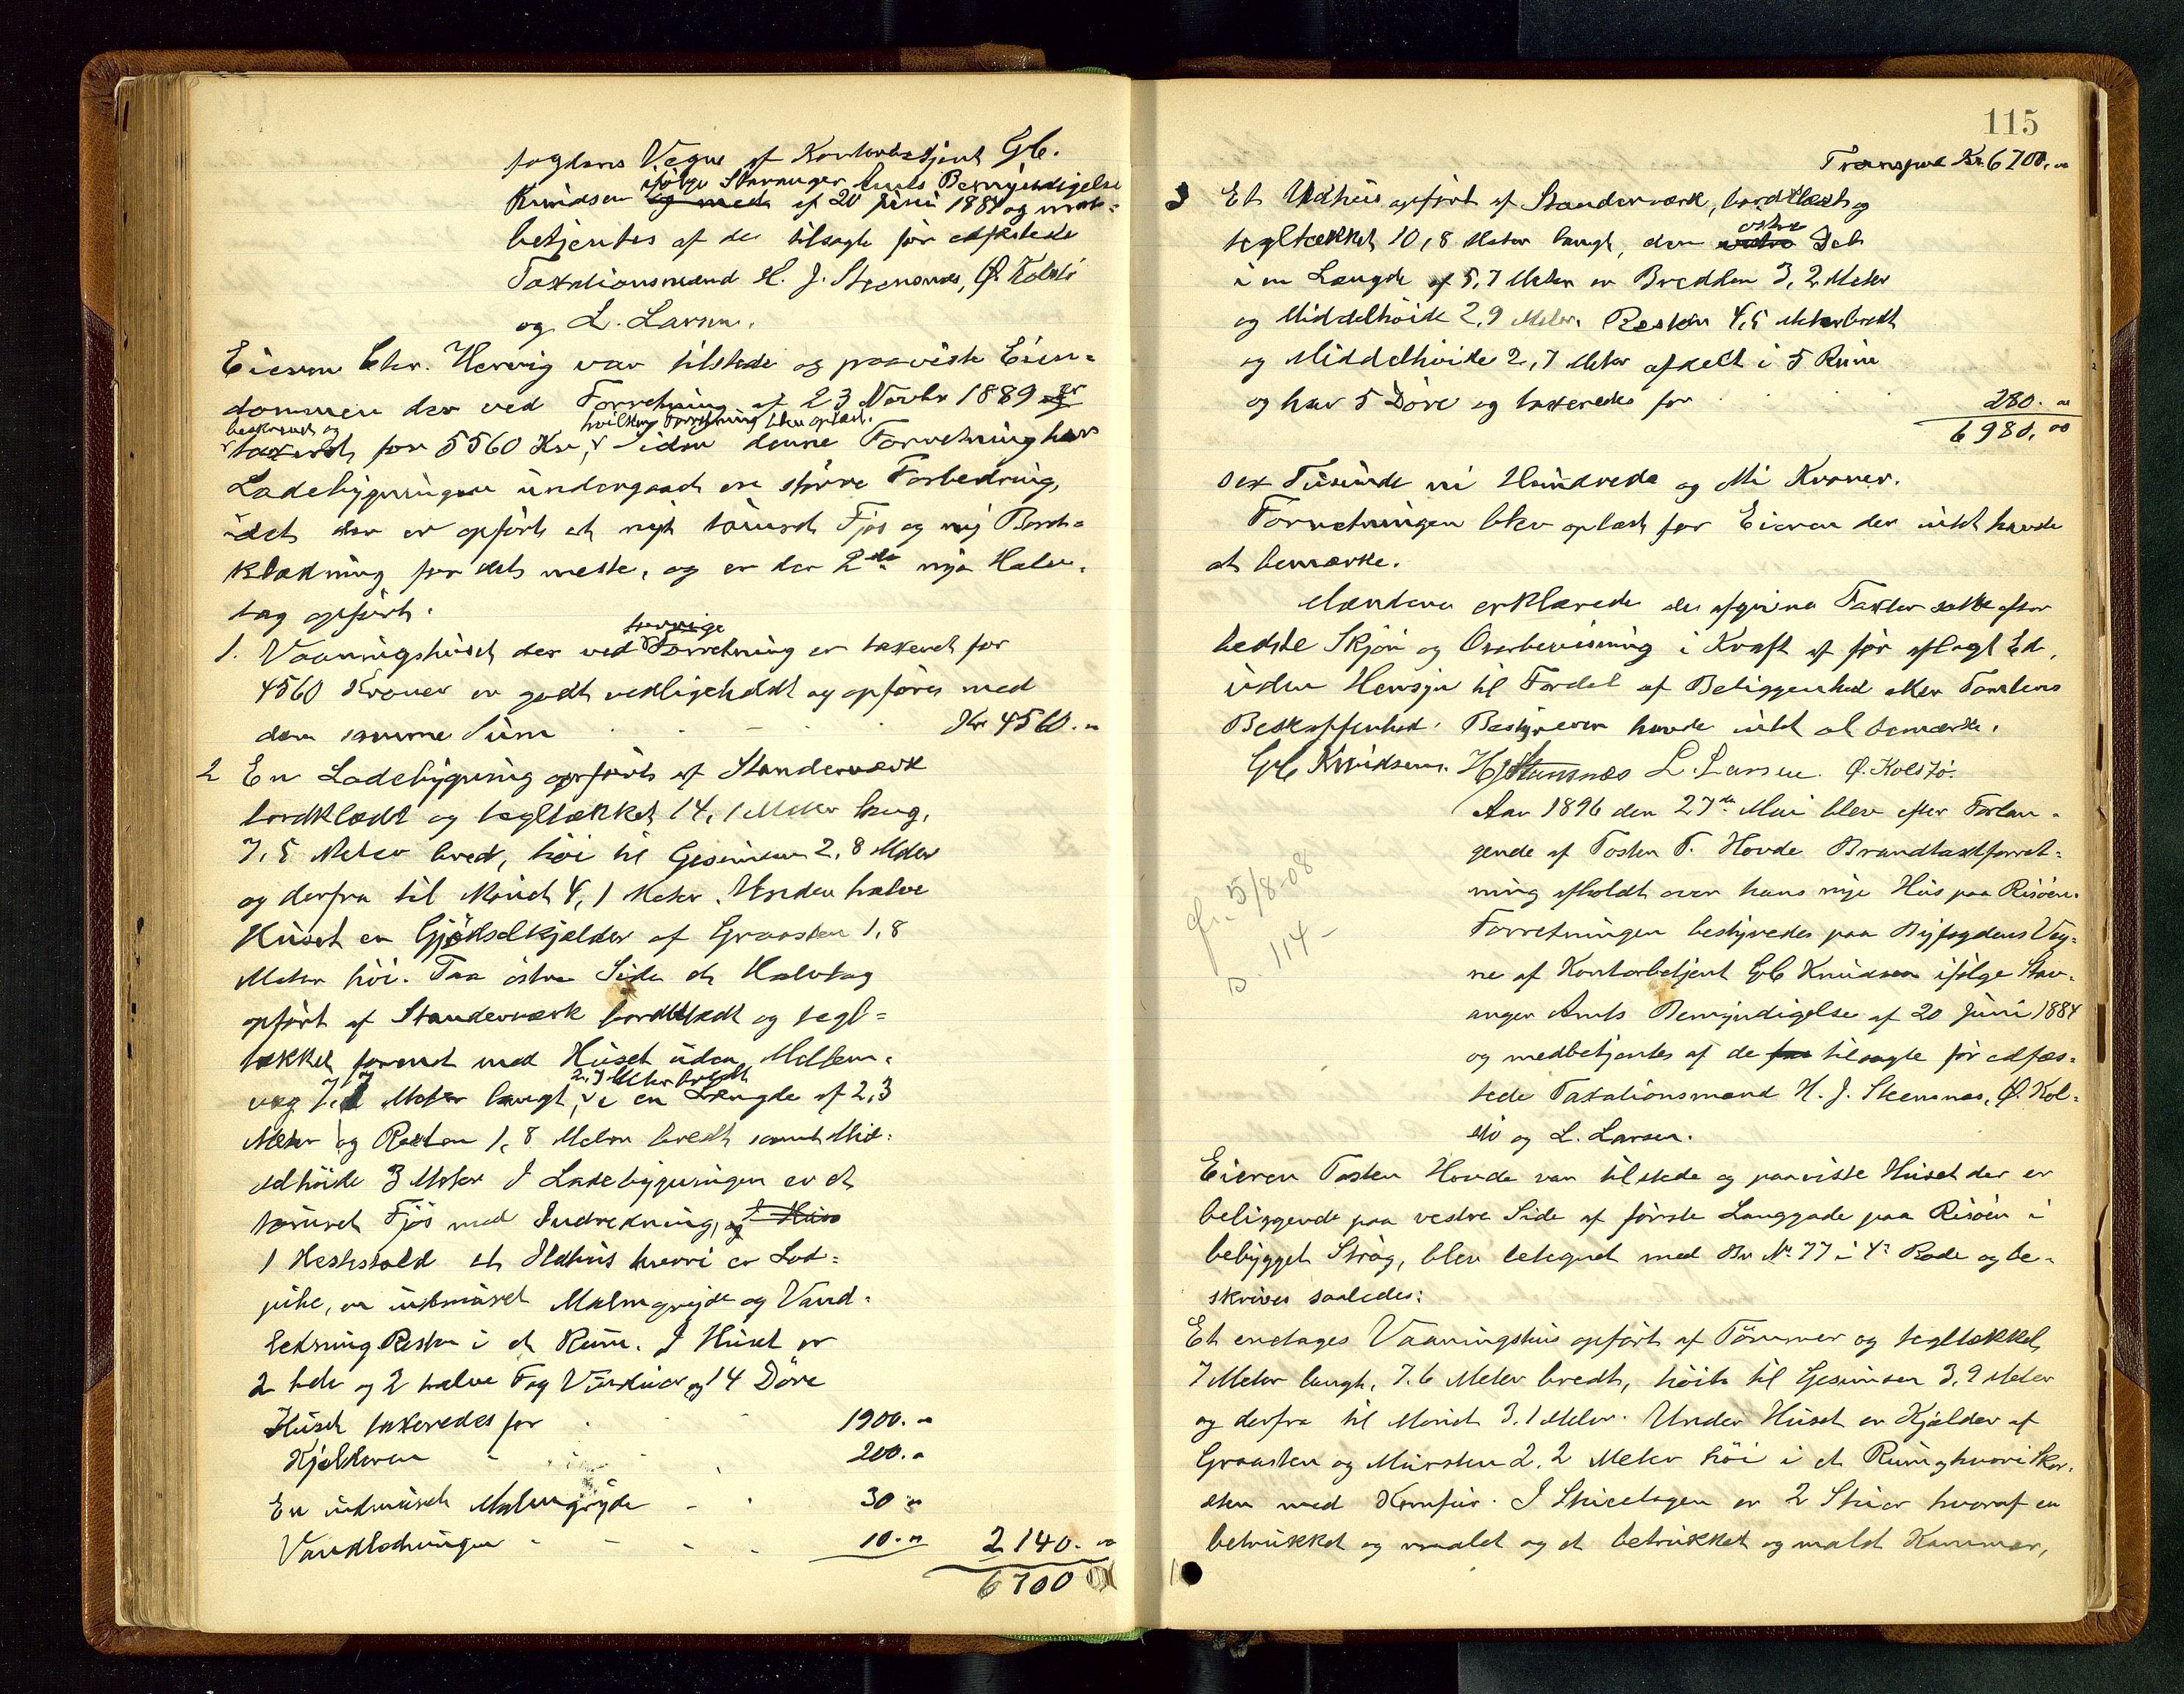 fogdens Vegne af Kontorbetjent Gb.
Knudsen og med ifølge Stavanger Amts Bemyndigelse
af 20 Juni 1884 og med-
betjentes af de tilsagte før edfæstede
Taxationsmænd H. J. Steensnæs, Ø. Kolstø
og L. Larsen.
Eieren Chr. Hervig var tilstede og paaviste Eien-
dommen der ved Forretning af 23 Novbr 1889 er
beskrevet og taxeret for 5560 Kr, hvilken Forretning blev oplæst. Siden denne Forretning har
Ladebygningen undergaaet en større Forbedring,
idet der er opført et nyt tømret Fjøs og ny Bord-
klædning for det meste, og er der 2de nye Halv-
tag opført.
1. Vaaningshuset der ved forrige Forretning er taxeret for
4560 Kroner er godt vedligeholdt og opføres med
den samme Sum Kr 4560.00
2 En Ladebygning opført af Standerværk
bordklædt og tegltækket 14,1 Meter lang,
7,5 Meter bred, høi til Gesimsen 2,8 Meter
og derfra til Mønet 4,1 Meter. Under halve
Huset en Gjødselkjælder af Graasten 1,8
Meter høi. Paa østre Side et Halvtag
opført af Standerværk bordklædt og tegl-
tækket forenet med Huset uden Mellem-
væg 7,7 Meter langt, 2,7 Meter bredt i en Længde af 2,3
Meter og Resten 1,8 Meter bredt samt Mid-
delhøide 3 Meter I Ladebygningen er et
tømret Fjøs med Indredning, og 1 Hus
1 Hestestald et Ildhus hvori er Lod-
pibe, en indmuret Malmgryde og Vand-
ledning Resten i et Rum. I Huset er
2 hele og 2 halve Fag Vinduer og 14 Døre
Huset taxeredes for 1900.00
Kjælderen 200.00
En indmuret Malmgryde 30.00
Vandledningen 10.00 2140.00
6700 00
115
Transport Kr. 6700.00
3 Et Udhus opført af Standerværk, bordklædt og
tegltækket 10,8 Meter langt, den vestre østre Del
i en Længde af 5,7 Meter er Bredden 3,2 Meter
og Middelhøide 2,9 Meter. Resten 4,5 Meter bredt
og Middelhøide 2,7 Meter afdelt i 5 Rum
og har 5 Døre og taxeredes for 280.00
6980,00
sex Tusinde ni Hundrede og Kroner.
Forretningen blev oplæst for Eieren der intet havde
at bemærke.
Mændene erklærede de afgivne Taxter satte efter
bedste Skjøn og Overbevisning i Kraft af før aflagt Ed,
uden Hensyn til Fordel af Beliggenhed eller Tomtens
Beskaffenhed. Bestyreren havde intet at bemærke.
Gb Knudsen. HJSteensnæs L. Larsen. Ø. Kolstø.
Aar 1896 den 27de Mai blev efter Forlan-
gende af Tosten T. Hovde Brandtaxtforret-
ning afholdt over hans nye Hus paa Risøen.
Forretningen bestyredes paa Byfogdens Veg-
ne af Kontorbetjent Gb Knudsen ifølge Stav-
anger Amts Bemyndigelse af 20 Juni 1884
og medbetjentes af de for tilsagte før edfæs-
tede Taxationsmænd H. J. Steensnæs, Ø. Kol-
stø og L. Larsen.
5/8-08
114-
Eieren Tosten Hovde var tilstede og paaviste Huset der er
beliggende paa vestre Side af første Langgade paa Risøen i
bebygget Strøg, blev betegnet med Hr No 77 i 4de Rode og be-
skrives saaledes:
Et enetages Vaaningshus opført af Tømmer og tegltækket,
7 Meter langt, 7.6 Meter bredt, høit til Gesimsen 3,9 Meter
og derfra til Mønet 3,1 Meter. Under Huset er Kjælder af
Graasten og Mursten 2,2 Meter høi i et Rum og hvori Skor-
sten med Komfur. I Stueetagen er 2 Stuer hvoraf en
betrukket og maalet og et betrukket og malet Kammer,